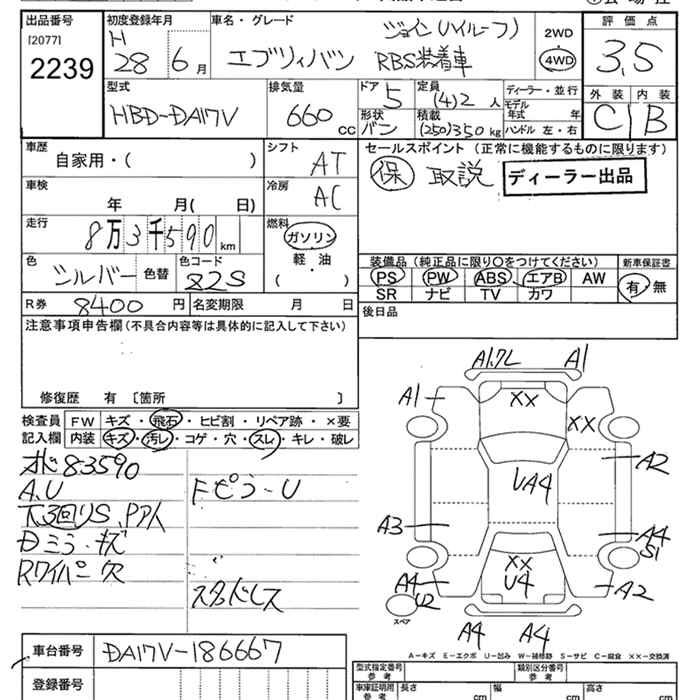 出品番号 初度登録年月 車名・グレード ジョイン(ハイルーフ) 2WD 評価点
[2077] H
2239 28 6月 エブリィバン RBS装着車 4WD 3,5
型式 排気量 ドア 5 定員 (4)2人 ディーラー・並行 外装 内装
HBD-DA17V 660 CC 形状 バン 積載 (250)350kg モデル年式 年 C B
ハンドル 左・右
車歴 シフト セールスポイント (正常に機能するものに限ります)
自家用・( ) AT 保 取説 ディーラー出品
車検 冷房
年 月( 日) AC
走行 燃料
8万3千590km ガソリン
軽油
装備品 (純正品に限り〇をつけてください) 新車保証書
色 色コード
シルバー 色替 Z2S ・( )
PS PW ABS エアB AW 有・無
SR ナビ TV カワ
R券 8400円 名変期限 月 日 後日品
注意事項申告欄 (不具合内容等は具体的に記入して下さい)
修復歴 有 〔箇所 〕
検査員 FW キズ・飛石・ヒビ割・リペア跡・×要
記入欄 内装 キズ・汚レ・コゲ・穴・スレ・キレ・破レ
83590
A,U Fピラ-U
下3回りS、Pアト
Dミラ-キズ
Rワイパー欠
スタッドレス
A1,クレ A1
A1 XX XX
A2
UA4
A3 A4
S1
XX
A4 U4 A2
U2
スペア
A4 A4
A-キズ E-エクボ U-凹み W-補修跡 S-サビ C-腐食 ××-交換済
車台番号 DA17V-186667
型式指定番号 参考 類別区分番号 参考
登録番号 車庫証明用 参考 長さ cm 幅 cm 高さ cm